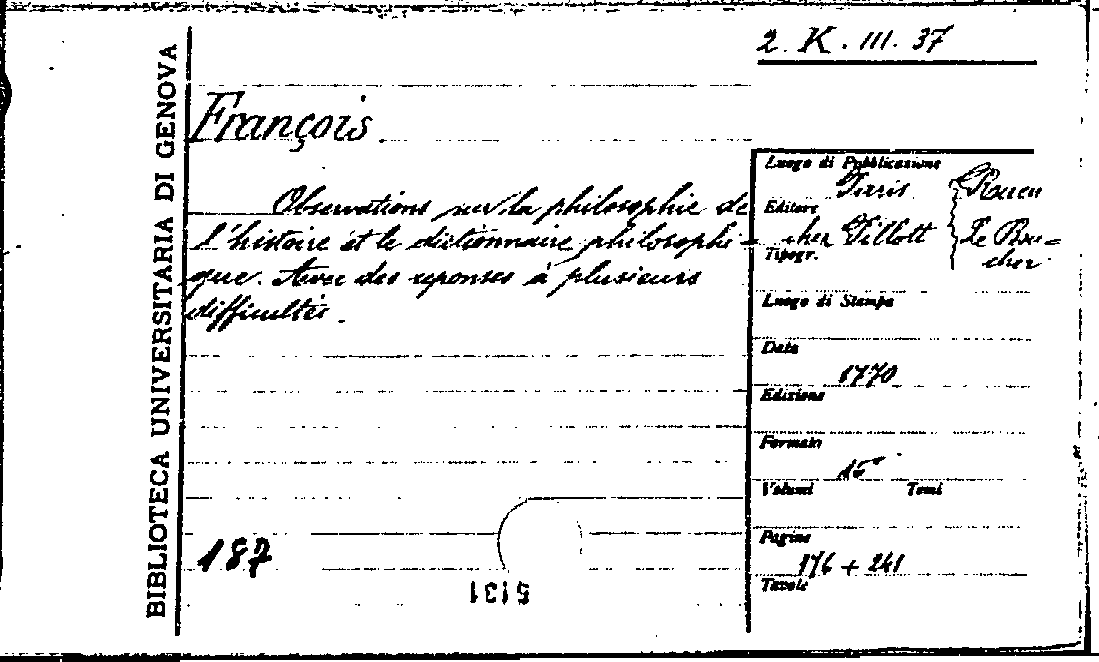 2. K. III. 37
BIBLIOTECA UNIVERSITARIA DI GENOVA
François
Observations sur la philosophie de
l'histoire et le dictionnaire philosophi=
que. Avec des reponses à plusieurs
difficultés.
Luogo di Pubblicazione
Paris Rouen
Editore
cher Pillott Le Bou=
cher
Tipogr.
Luogo di Stampa
Data
1770
Edizione
Formato
Volumi Tomi
Pagine
176 + 241
Tavole
187
5131